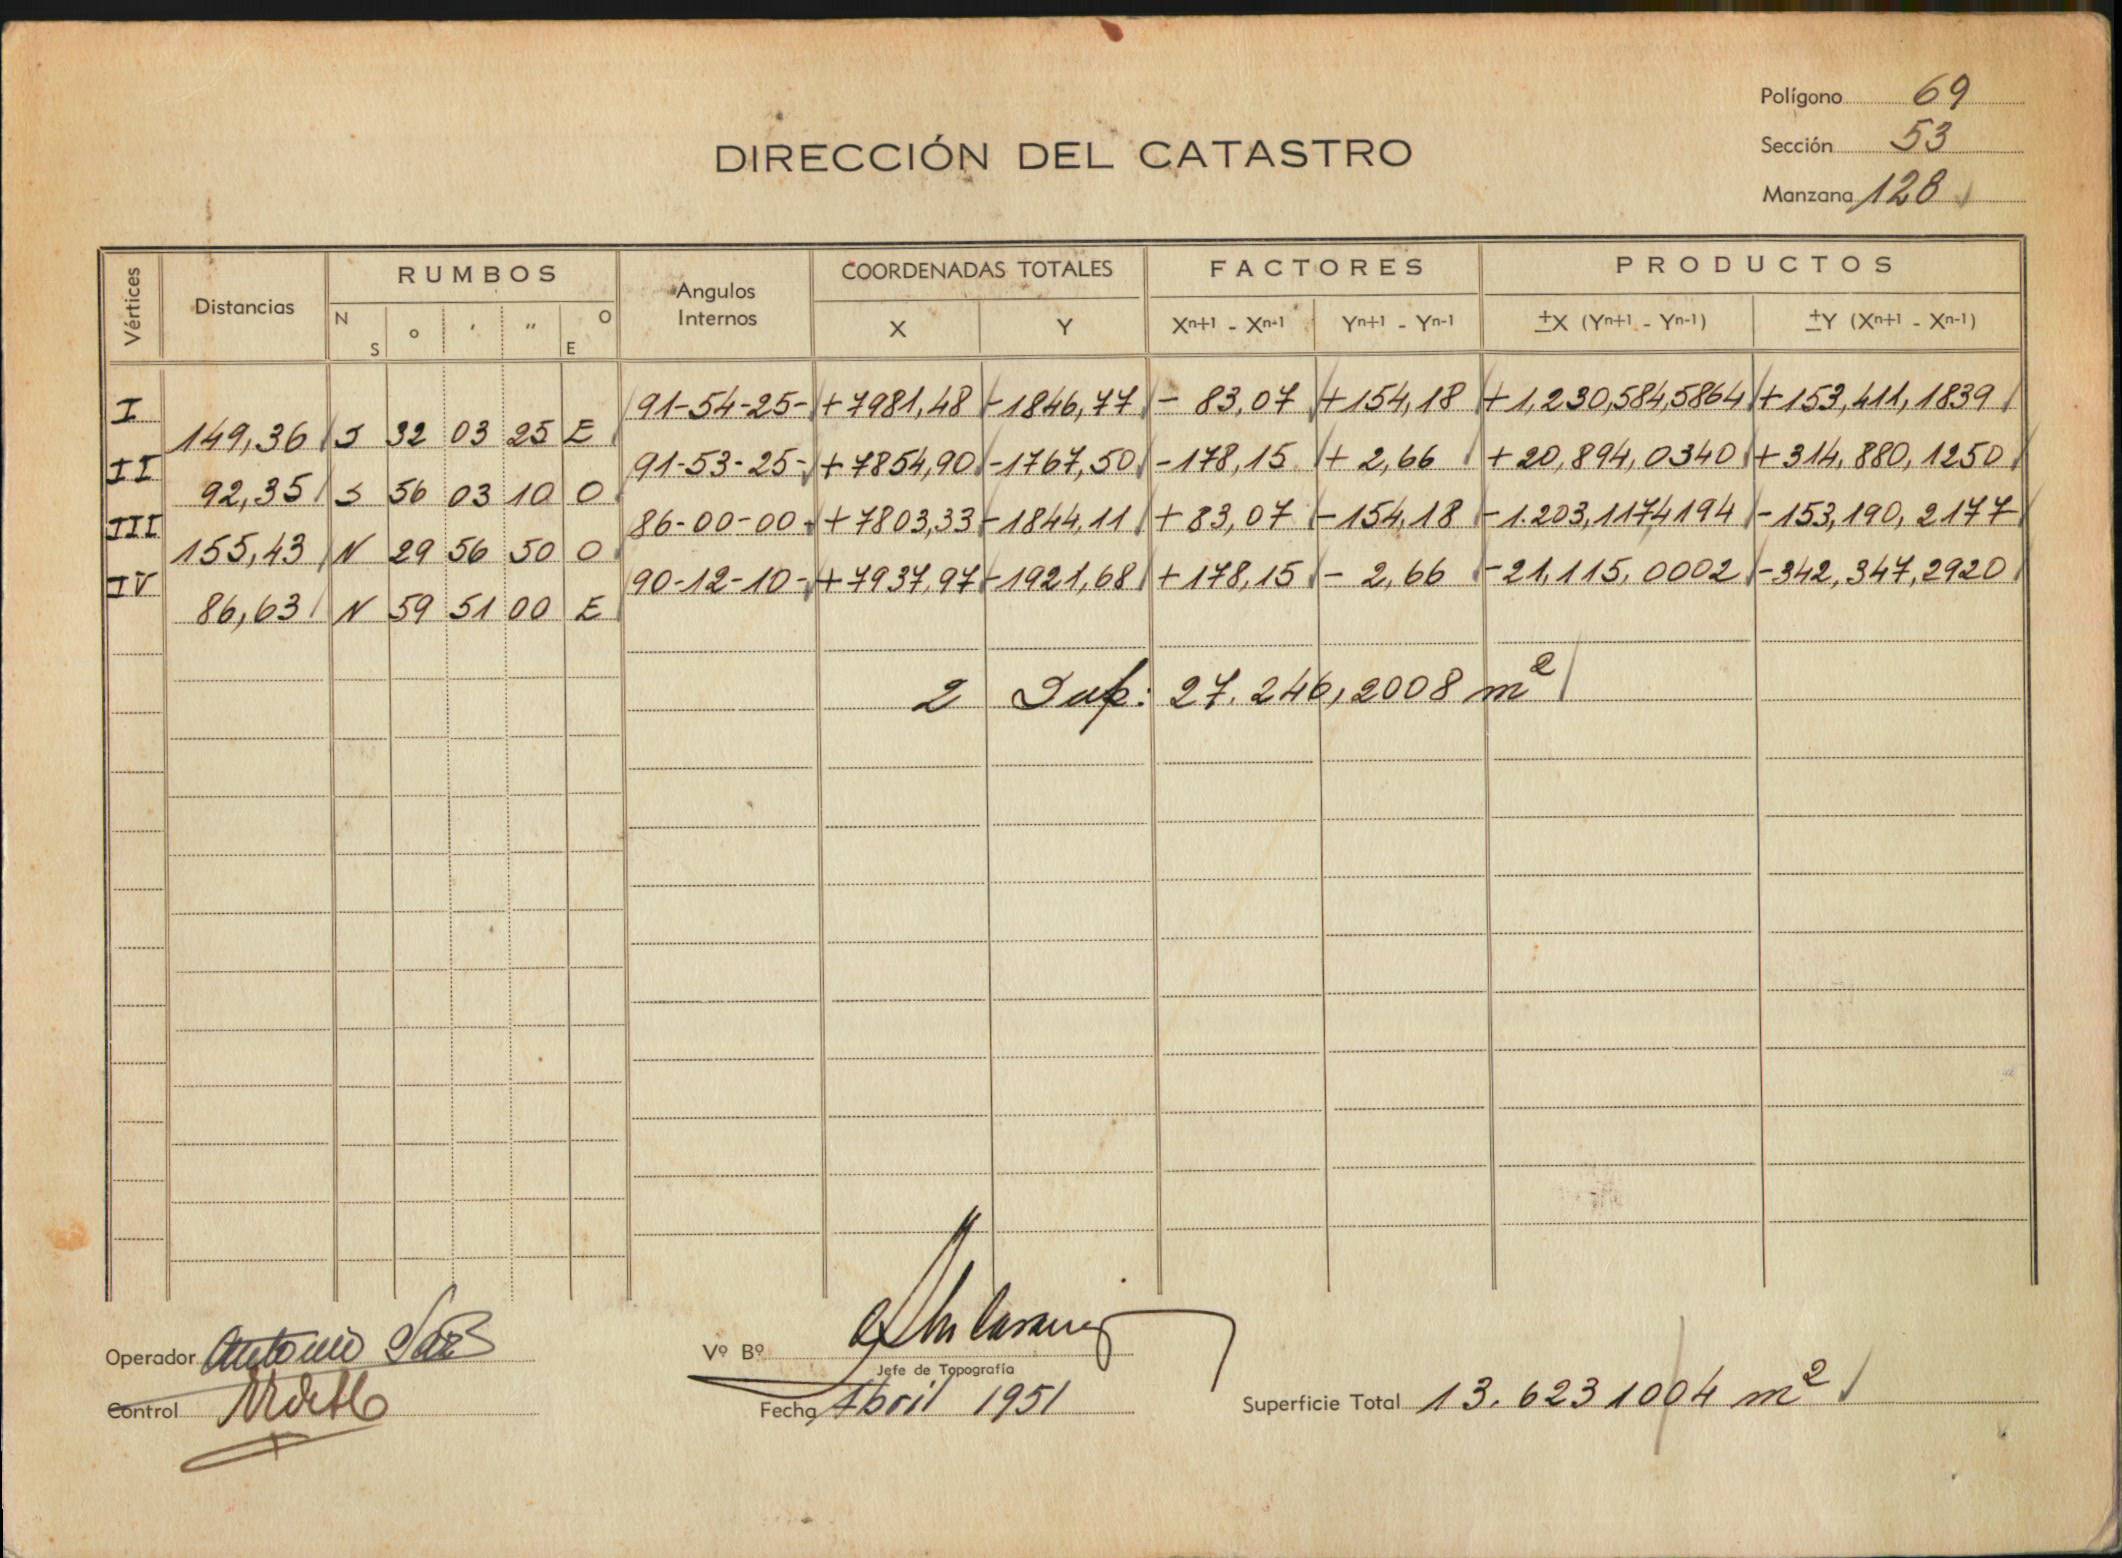 Polígono 69
DIRECCIÓN DEL CATASTRO
Sección 53
Manzana 128
Vértices Distancias RUMBOS Angulos Internos COORDENADAS TOTALES FACTORES PRODUCTOS
N S ° ′ ″ O E X Y Xⁿ⁺¹ - Xⁿ⁻¹ Yⁿ⁺¹ - Yⁿ⁻¹ ±X (Yⁿ⁺¹ - Yⁿ⁻¹) ±Y (Xⁿ⁺¹ - Xⁿ⁻¹)
I 91-54-25- +7981,48 -1846,77 - 83,07 +154,18 +1,230,584,5864 +153,411,1839
149,36 S 32 03 25 E
II 91-53-25- +7854,90 -1767,50 -178,15 + 2,66 +20,894,0340 +314.880,1250
92,35 S 56 03 10 O
III 86-00-00- +7803,33 -1844,11 +83,07 -154,18 -1.203,1174194 -153,190,2177
155,43 N 29 56 50 O
IV 90-12-10- +7937,97 -1921,68 +178,15 - 2,66 -21,115,0002 -342,347,2920
86,63 N 59 51 00 E
2 Sup: 27.246,2008 m²
Operador Antonio
Vº Bº
Jefe de Topografía
Control
Fecha Abril 1951
Superficie Total 13.623 1004 m²